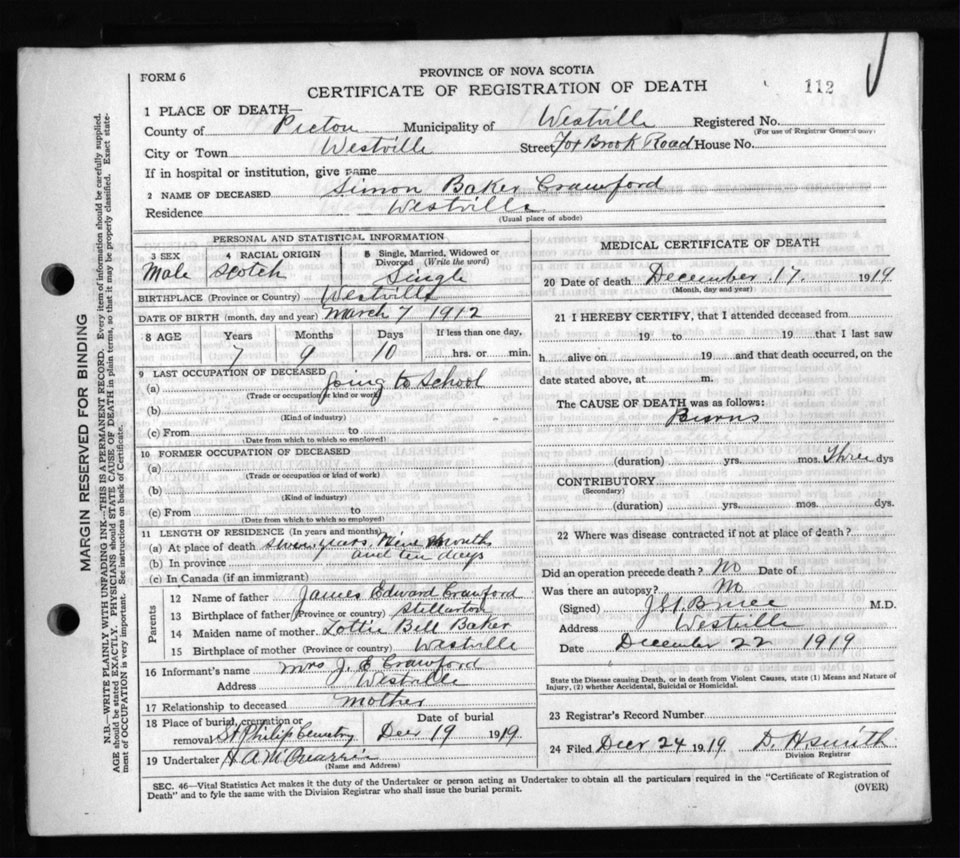 FORM 6
PROVINCE OF NOVA SCOTIA
CERTIFICATE OF REGISTRATION OF DEATH
112
1 PLACE OF DEATH—
County of Pictou Municipality of Westville Registered No.
(For use of Registrar General only)
City or Town Westville Street Fox Brook Road House No.
If in hospital or institution, give name
2 NAME OF DECEASED Simon Baker Crawford
Residence Westville
(Usual place of abode)
PERSONAL AND STATISTICAL INFORMATION
3 SEX 4 RACIAL ORIGIN 5 Single, Married, Widowed or Divorced (Write the word)
Male Scotch Single
BIRTHPLACE (Province or Country) Westville
DATE OF BIRTH (month, day and year) March 7 1912
8 AGE Years Months Days If less than one day,
7 9 10 hrs. or min.
9 LAST OCCUPATION OF DECEASED
(a) going to School
(Trade or occupation or kind or work)
(b)
(Kind of industry)
(c) From to
(Date from which to which so employed)
10 FORMER OCCUPATION OF DECEASED
(a)
(Trade or occupation or kind of work)
(b)
(Kind of industry)
(c) From to
(Date from which to which so employed)
11 LENGTH OF RESIDENCE (In years and months)
(a) At place of death seven years, Nine months
(b) In province and ten days
(c) In Canada (if an immigrant)
Parents
12 Name of father James Edward Crawford
13 Birthplace of father (Province or country) Stellarton
14 Maiden name of mother Lottie Bell Baker
15 Birthplace of mother (Province or country) Westville
16 Informant's name Mrs J. E Crawford
Address Westville
17 Relationship to deceased mother
18 Place of burial, cremation or removal St Philip Cemetry Date of burial Decr 19 1919
19 Undertaker H A
(Name and Address)
MEDICAL CERTIFICATE OF DEATH
20 Date of death December 17 1919
(Month, day and year)
21 I HEREBY CERTIFY, that I attended deceased from
19 to 19 that I last saw
h alive on 19 and that death occurred, on the
date stated above, at m.
The CAUSE OF DEATH was as follows:
Burns
(duration) yrs. mos. Three dys
CONTRIBUTORY
(Secondary)
(duration) yrs. mos. dys.
22 Where was disease contracted if not at place of death?
Did an operation precede death? No Date of
Was there an autopsy? No
(Signed) Bruce M.D.
Address Westville
Date December 22 1919
State the Disease causing Death, or in death from Violent Causes, state (1) Means and Nature of
Injury, (2) whether Accidental, Suicidal or Homicidal.
23 Registrar's Record Number
24 Filed Decr 24 1919 D. H. Smith
Division Registrar
SEC. 46—Vital Statistics Act makes it the duty of the Undertaker or person acting as Undertaker to obtain all the particulars required in the "Certificate of Registration of
Death" and to fyle the same with the Division Registrar who shall issue the burial permit.
(OVER)
MARGIN RESERVED FOR BINDING
N.B.—WRITE PLAINLY WITH UNFADING INK—THIS IS A PERMANENT RECORD. Every item of information should be carefully supplied.
AGE should be stated EXACTLY. PHYSICIANS should STATE CAUSE OF DEATH in plain terms, so that it may be properly classified. Exact state-
ment of OCCUPATION is very important. See instructions on back of Certificate.